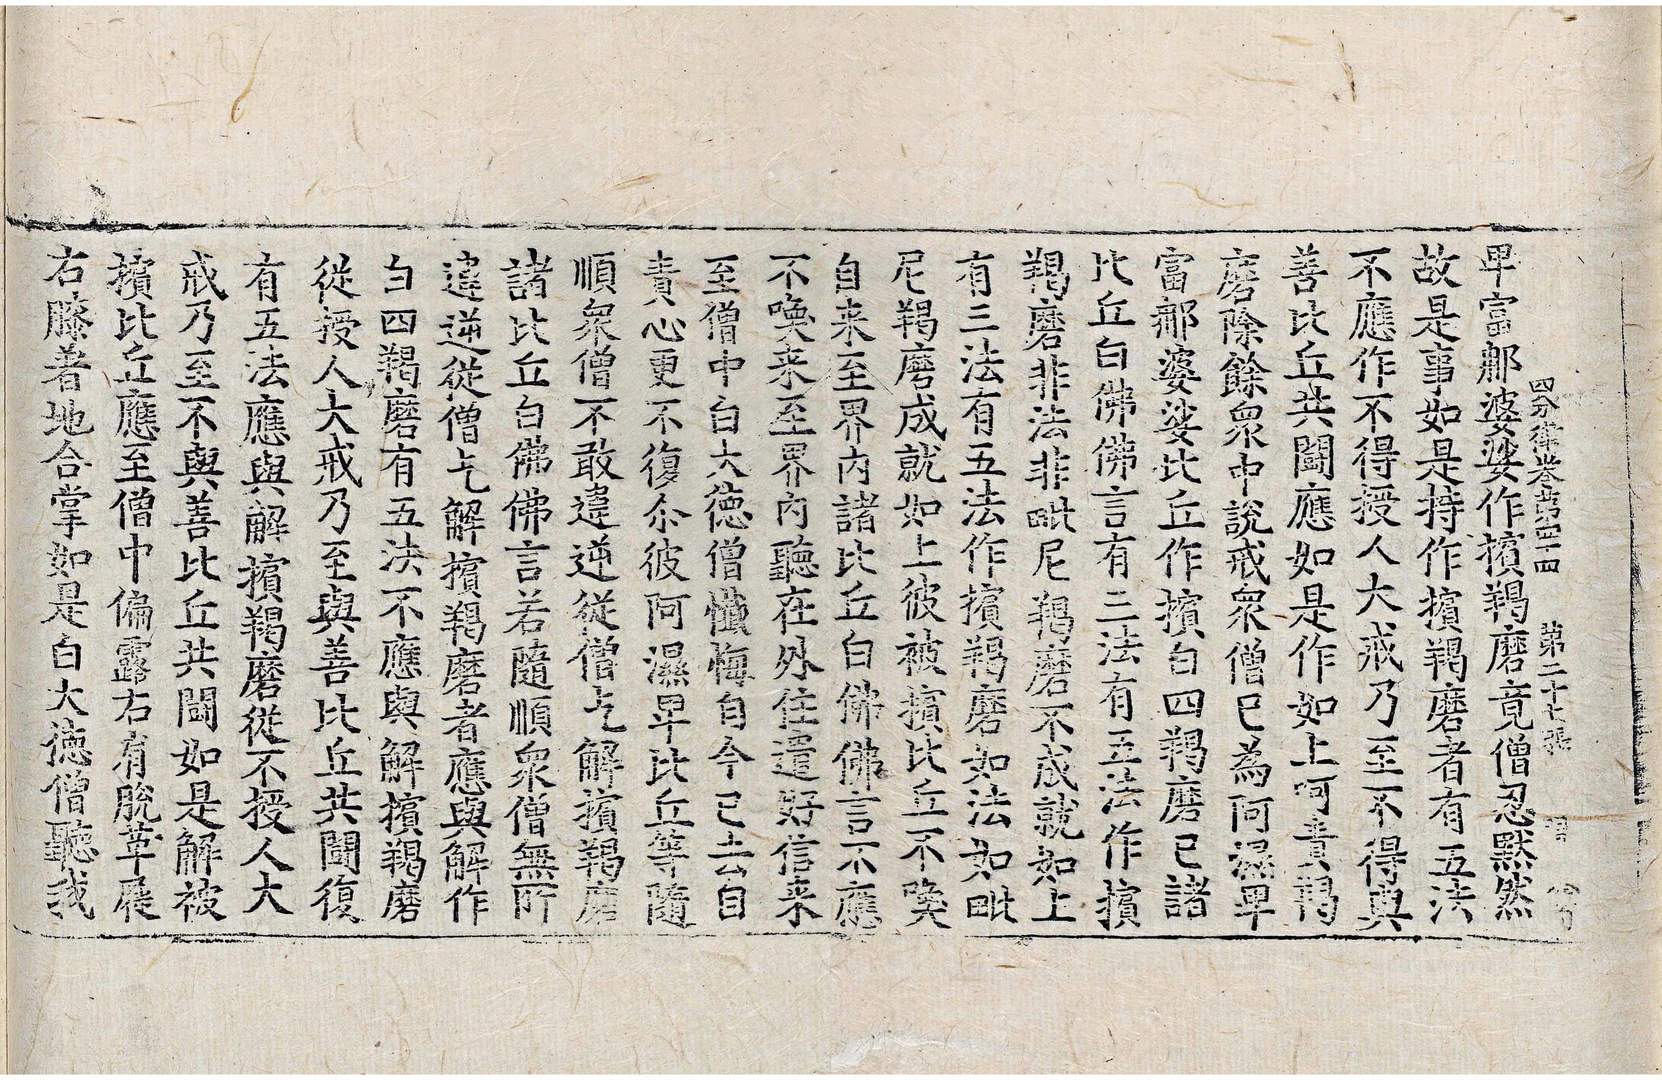 四分律卷第四十四 第二十七張
卑富那婆娑作擯羯磨竟僧忍默然
故是事如是持作擯羯磨者有五法
不應作不得授人大戒乃至不得與
善比丘共鬪應如是作如上呵責羯
磨除餘衆中說戒衆僧已為阿濕卑
富那婆娑比丘作擯白四羯磨已諸
比丘白佛佛言有三法有五法作擯
羯磨非法非毗尼羯磨不成就如上
有三法有五法作擯羯磨如法如毗
尼羯磨成就如上彼被擯比丘不喚
自来至界内諸比丘白佛佛言不應
不喚来至界内聽在外住遣好信来
至僧中白大德僧懺悔自今已去自
責心更不復尒彼阿濕卑比丘等隨
順衆僧不敢違逆從僧乞解擯羯磨
諸比丘白佛佛言若隨順衆僧無所
違逆從僧乞解擯羯磨者應與解作
白四羯磨有五法不應與解擯羯磨
從授人大戒乃至與善比丘共鬪復
有五法應與解擯羯磨從不授人大
戒乃至不與善比丘共鬪如是解被
擯比丘應至僧中偏露右肩脫革屣
右膝著地合掌如是白大德僧聽我